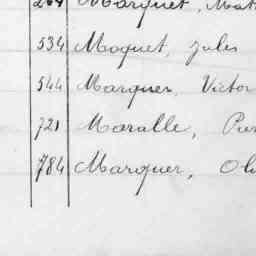 Marquet, Mat
534 Moquet, Jules
544 Marquer, Victor
721 Maralle, Pier
784 Marquer, Oli